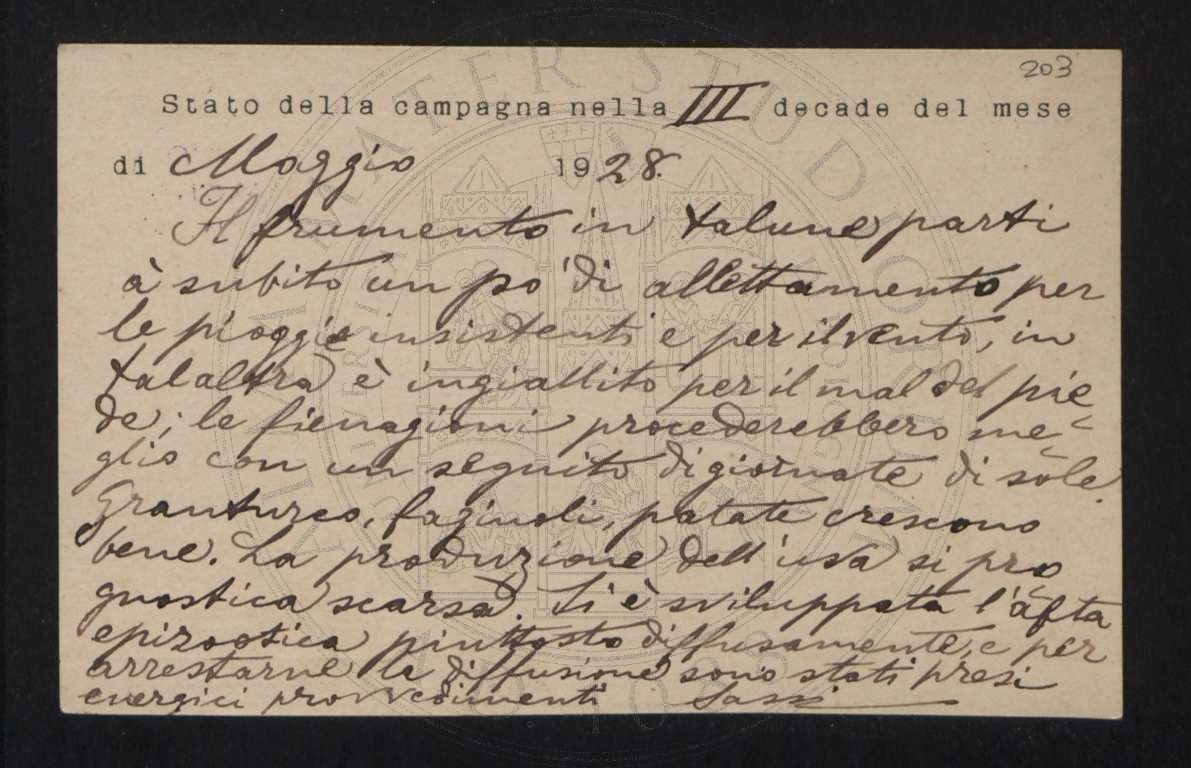 203
Stato della campagna nella III decade del mese
di Maggio 1928.
Il frumento in talune parti
à subito un po' di allettamento per
le pioggie insistenti e per il vento, in
talaltra è ingiallito per il mal del pie-
de; le fienagioni procederebbero me-
glio con un seguito di giornate di sole.
Granturco, fagiuoli, patate crescono
bene. La produzione dell'uva si pro
gnostica scarsa. Si è sviluppata l'afta
epizootica piuttosto diffusamente, e per
arrestarne la diffusione sono stati presi
energici provvedimenti Sassi
ALMA MATER STUDIORUM